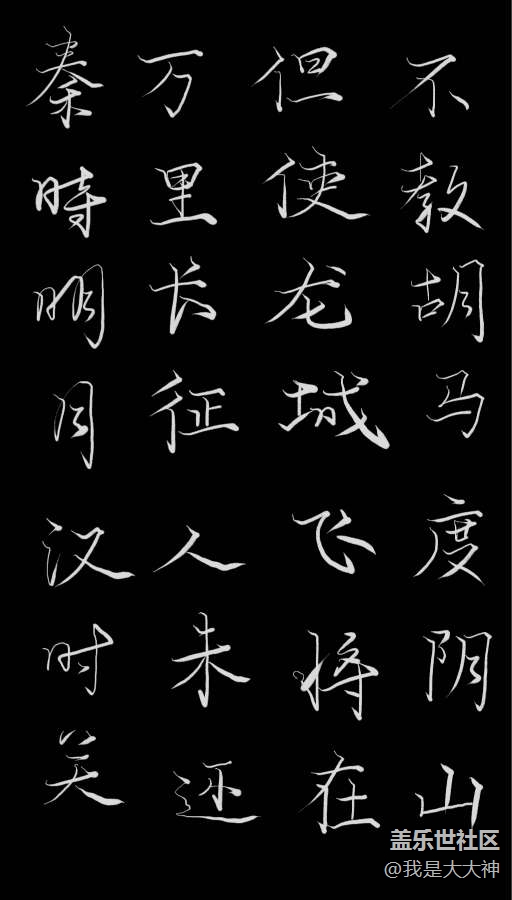 秦時明月汉时关
万里长征人未还
但使龙城飞将在
不教胡马度阴山
盖乐世社区
@我是大大神